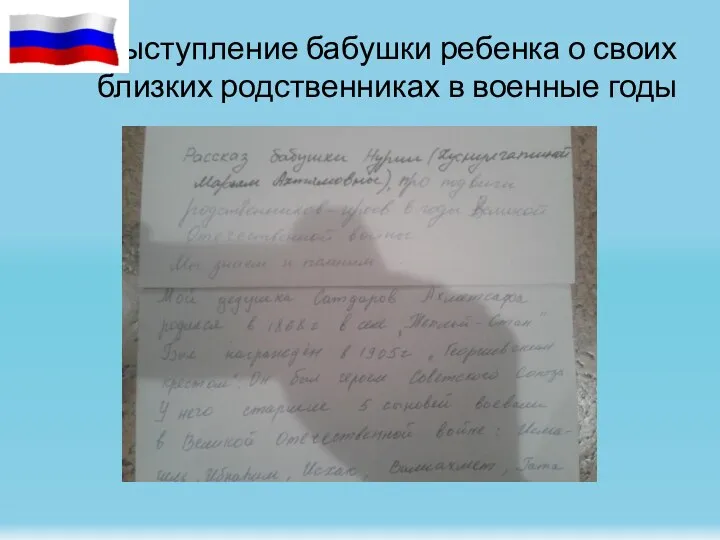 ыступление бабушки ребенка о своих
близких родственниках в военные годы
Рассказ бабушки Нурии (Хуснулгатиной
Марьям Ахтямовны), про подвиги
родственников-героев в годы Великой
Отечественной войны
Мы знаем и помним
Мой дедушка Саттаров Ахметсафа
родился в 1868 г в селе „Теплый-Стан"
Был награжден в 1905 г „Георгиевским
крестом". Он был героем Советского Союза.
У него старшие 5 сыновей воевали
в Великой Отечественной войне: Исма-
Ибрагим, Исхак, Салиахмет, Гата